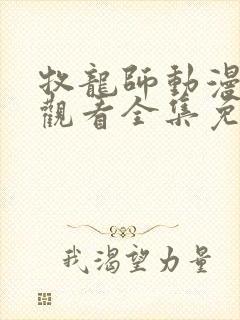 牧龍師動漫
觀看全集免
我渴望力量